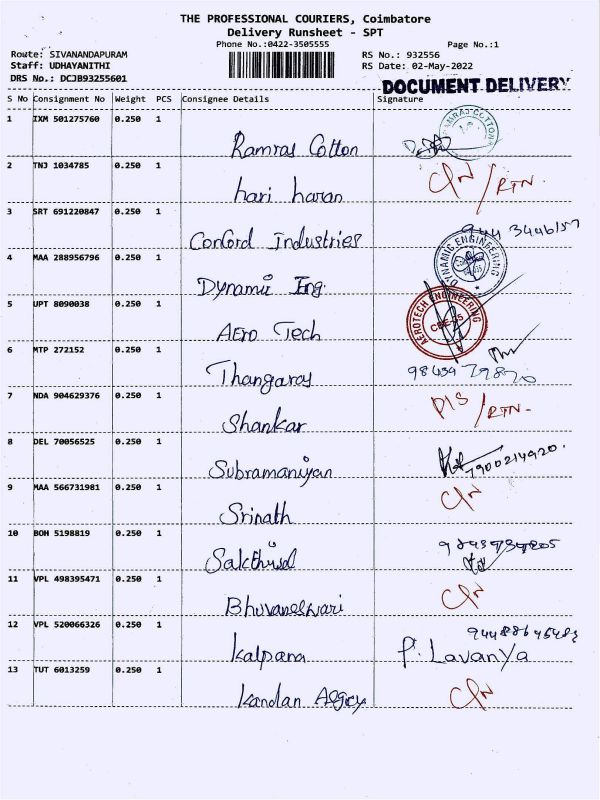 THE PROFESSIONAL COURIERS, Coimbatore
Delivery Runsheet - SPT
Phone No.:0422-3505555
Page No.:1
Route: SIVANANDAPURAM
RS No.: 932556
Staff: UDHAYANITHI
RS Date: 02-May-2022
DRS No.: DCJB93255601
DOCUMENT DELIVERY
S No Consignment No Weight PCS Consignee Details Signature
1 IXM 501275760 0.250 1
Ramraj Cotton
2 TNJ 1034785 0.250 1
hari haran
C/N / RTN.
3 SRT 691220847 0.250 1
Conford Industries
944 3446157
4 MAA 288956796 0.250 1
Dynamic Eng.
DYNAMIC ENGINEERING
5 UPT 8090038 0.250 1
AEro Tech
AEROTECH ENGINEERING
CBE-35
6 MTP 272152 0.250 1
Thangaraj
7 NDA 904629376 0.250 1
Shankar
D/S / RTN-
8 DEL 70056525 0.250 1
Subramaniyan
7900214920.
9 MAA 566731981 0.250 1
Srinath
C/N
10 BOM 5198819 0.250 1
Sakthivel
11 VPL 498395471 0.250 1
Bhuvaneshwari
C/N
12 VPL 520066326 0.250 1
Kalpana
P. Lavanya
13 TUT 6013259 0.250 1
Kandan
C/N